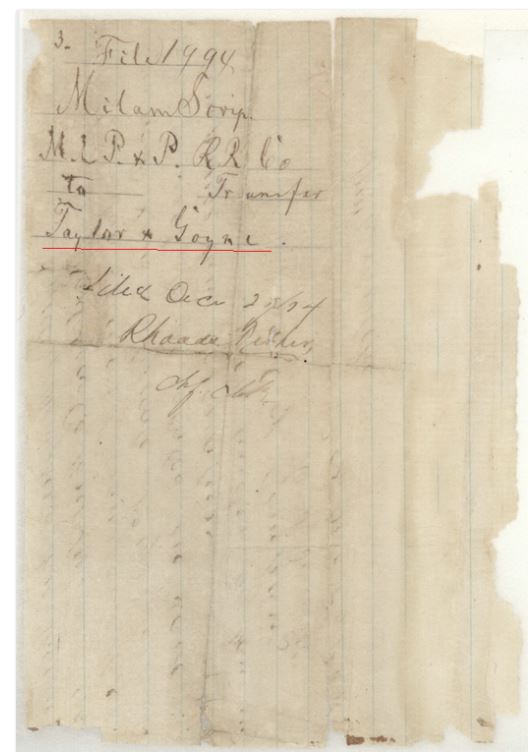 3.
File 1494
Milam Scrip.
M. E. P. & P. RR Co
to Transfer
Taylor & Goyne.
Filed Dec 2 /74
Rhoads Fisher,
Chf Clk